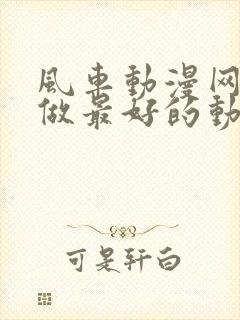 風車動漫网
做最好的動
可是轩白